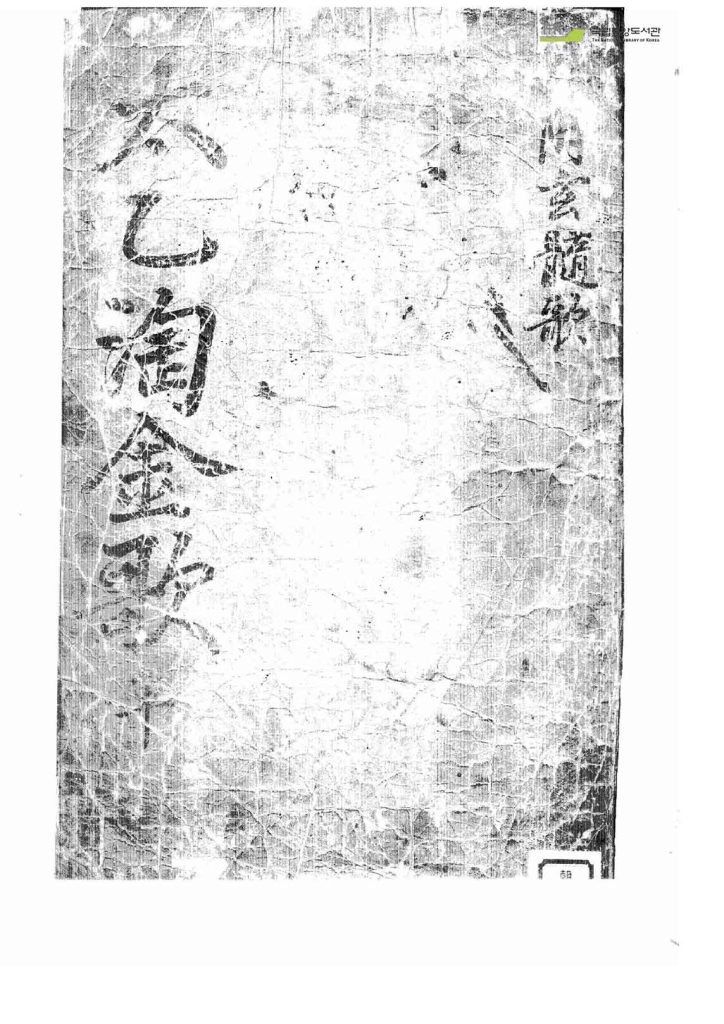 국립중앙도서관
THE NATIONAL LIBRARY OF KOREA
玄髓歌
太乙淘金歌